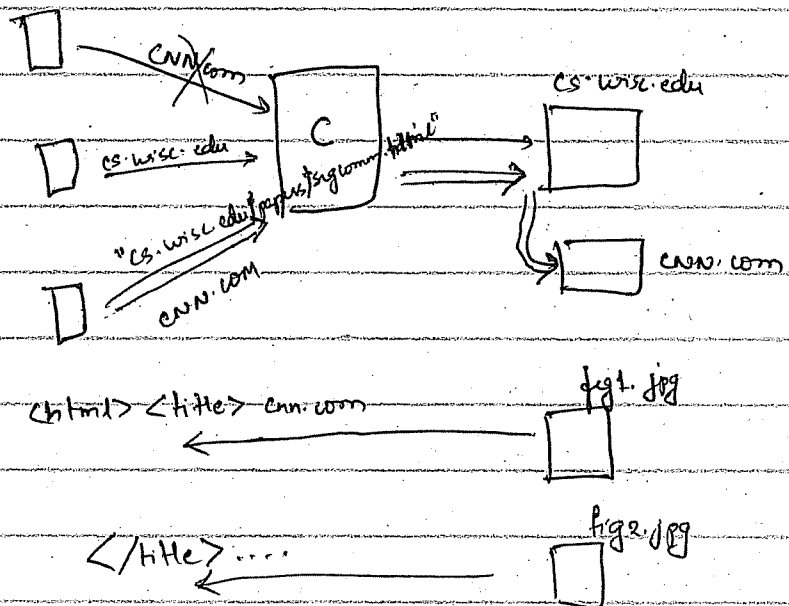 CNN.com
cs.wisc.edu
C
cs.wisc.edu
"cs.wisc.edu/papers/sigcomm.html"
CNN.COM
CNN.com
<html> <title> cnn.com
fig1.jpg
</title>....
fig2.jpg